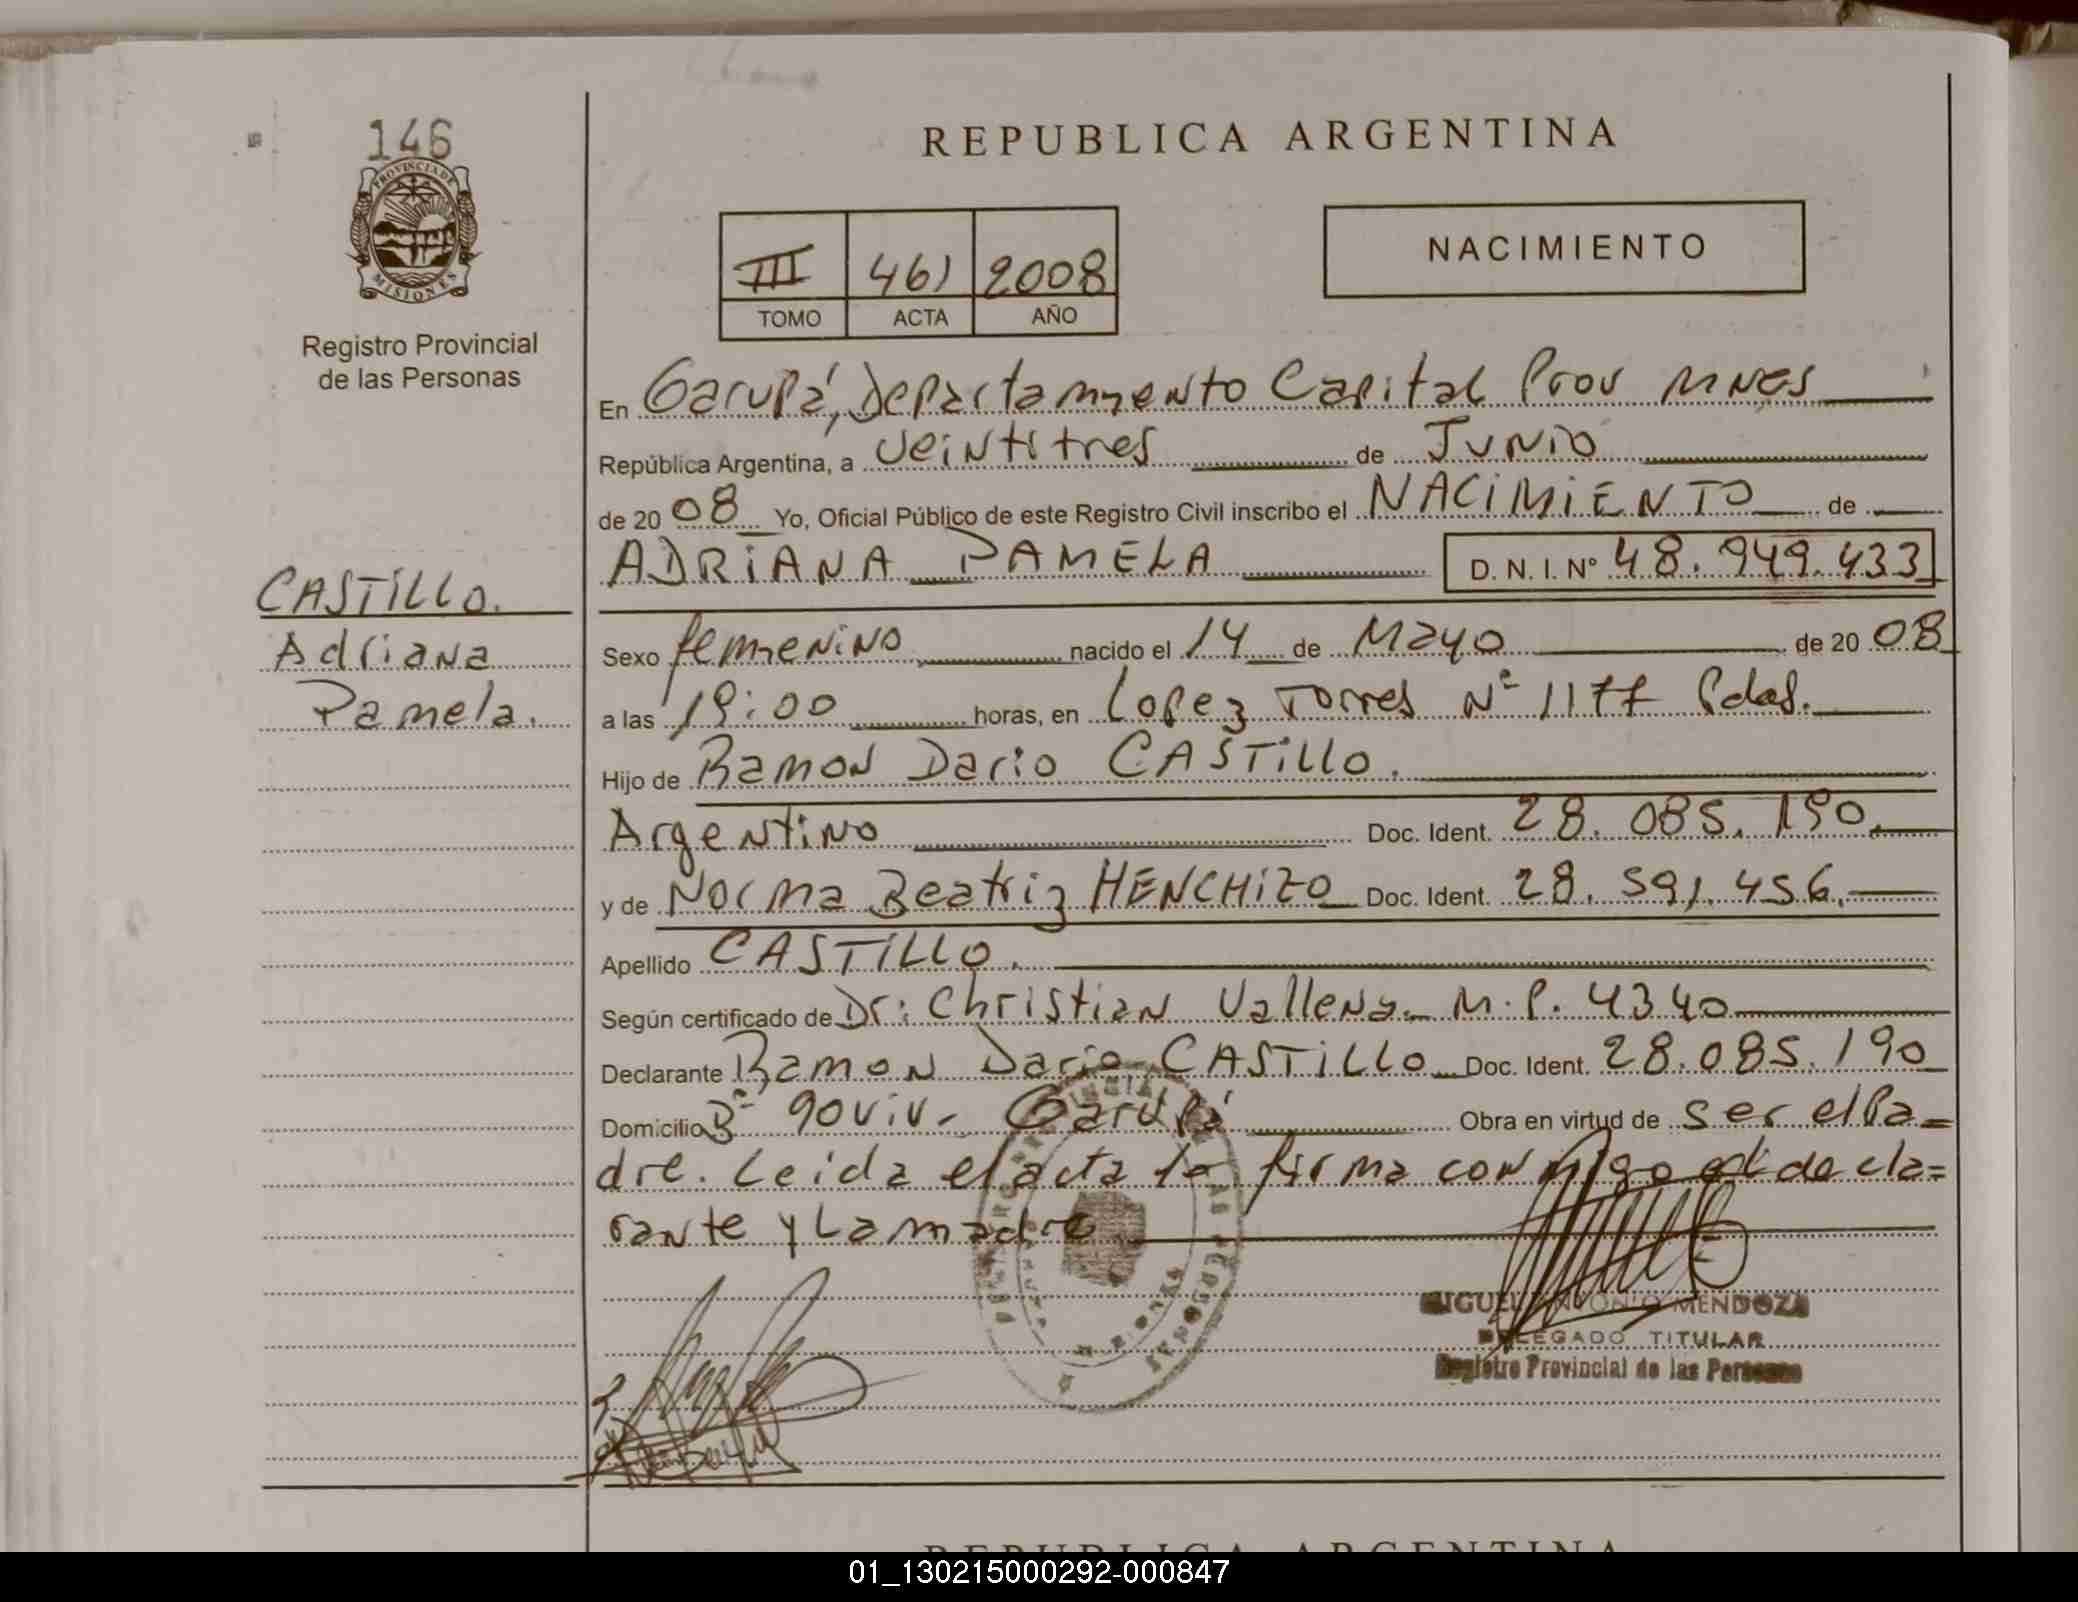 146
PROVINCIA DE
MISIONES
Registro Provincial
de las Personas
CASTILLO.
Adriana
Pamela.
REPUBLICA ARGENTINA
III 461 2008
TOMO ACTA AÑO
NACIMIENTO
En Garupá, Departamento Capital Prov Mnes
República Argentina, a veintitres de Junio
de 2008 Yo, Oficial Público de este Registro Civil inscribo el NACIMIENTO de
ADRIANA PAMELA D. N. I. Nº 48.949.433
Sexo femenino nacido el 14 de Mayo de 2008
a las 19:00 horas, en Lopez Torres Nº 1177 Pdas.
Hijo de Ramon Dario CASTILLO.
Argentino Doc. Ident. 28.085.190.
y de Norma Beatriz HENCHIZO Doc. Ident. 28.591.456.
Apellido CASTILLO.
Según certificado de Dr: Christian Vallena M.P. 4340
Declarante Ramon Dario CASTILLO Doc. Ident. 28.085.190
Domicilio Bº 90 viv- Garupá Obra en virtud de ser el Pa=
dre. Leida el acta la firma conmigo el decla=
rante y La madre
MIGUEL ANTONIO MENDOZA
DELEGADO TITULAR
Registro Provincial de las Personas
REPUBLICA ARGENTINA
01_130215000292-000847